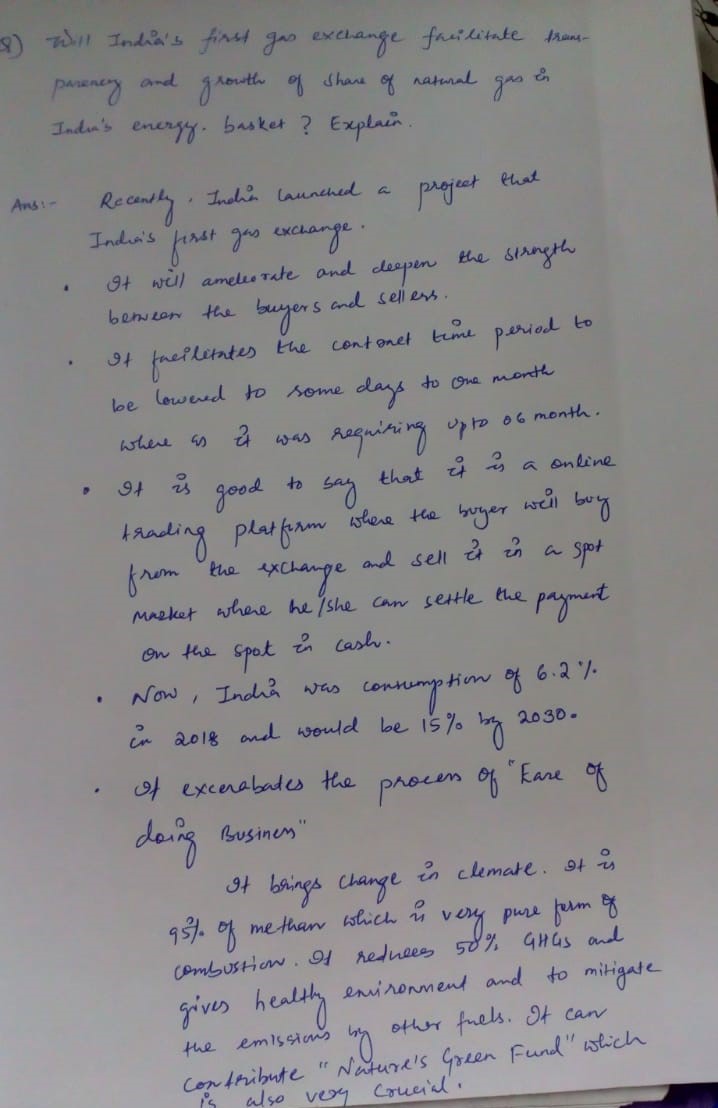 Q) Will India's first gas exchange facilitate trans-
parency and growth of share of natural gas in
India's energy. basket ? Explain.
Ans:- Recently, India launched a project that
India's first gas exchange.
• It will ameleorate and deepen the strength
between the buyers and sellers.
• It facilitates the contract time period to
be lowered to some days to one month
where as it was requiring upto 06 month.
• It is good to say that it is a online
trading platform where the buyer will buy
from the exchange and sell it in a spot
market where he/she can settle the payment
on the spot in cash.
• Now, India was consumption of 6.2%
in 2018 and would be 15% by 2030.
• It excerabates the process of "Ease of
doing Business"
It brings change in clemate. It is
95% of methan which is very pure form of
combustion. It reduces 50% GHGs and
gives healthy environment and to mitigate
the emissions by other fuels. It can
contribute "Nature's Green Fund" which
is also very crucial.